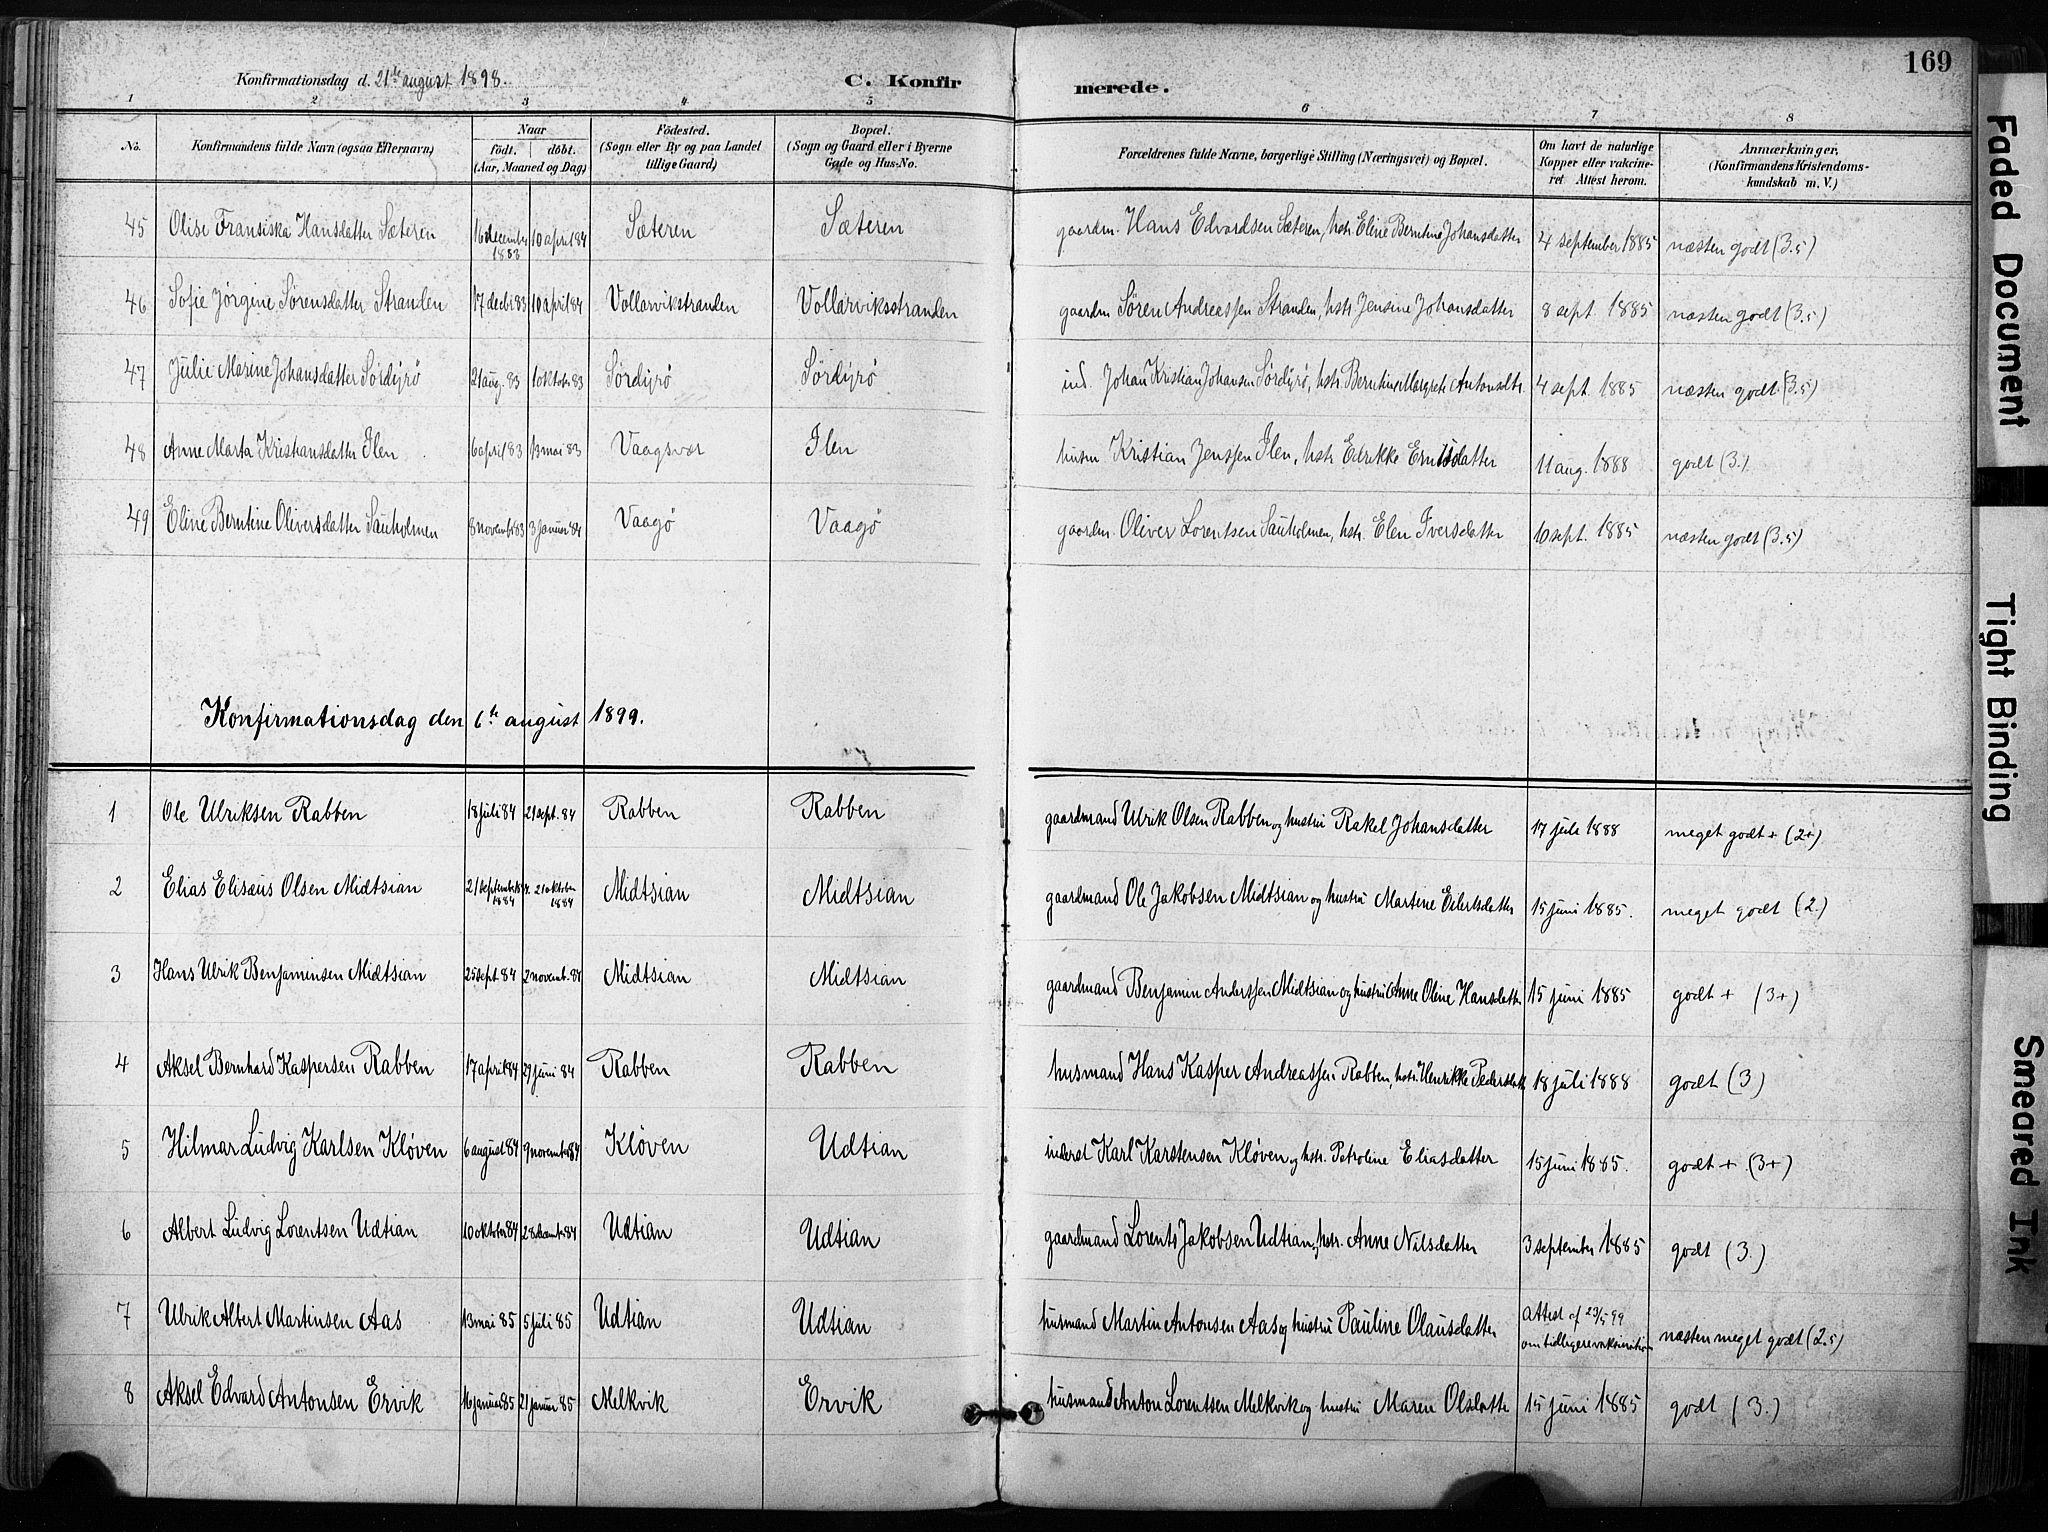 169
Konfirmationsdag d. 21de august 1898.
C. Konfir merede.
1 2 3 4 5 6 7 8
No. Konfirmandens fulde Navn (ogsaa Efternavn) Naar födt. döbt. (Aar, Maaned og Dag) Födested. (Sogn eller By og paa Landet tillige Gaard) Bopæl. (Sogn og Gaard eller i Byerne Gade og Hus-No. Forældrenes fulde Navne, borgerlige Stilling (Næringsvei) og Bopæl. Om havt de naturlige Kopper eller vakcineret Attest herom. Anmærkninger, (Konfirmandens Kristendomskundskab m. V.)
45 Olise Fransiska Hansdatter Sæteren 16 decembr 1883 10 april 84 Sæteren Sæteren gaardm. Hans Edvardsen Sæteren, hstr. Eline Berntine Johansdatter 4 september 1885 næsten godt (3.5)
46 Sofie Jørgine Sørensdatter Stranden 17 decbr 83 10 april 84 Vollarvikstranden Vollarviksstranden gaardm Søren Andreassen Stranden, hstr. Jensine Johansdatter 8 sept. 1885 næsten godt (3.5)
47 Julie Marine Johansdatter Sørdyrø 21 aug. 83 1 oktober 83 Sørdyrø Sørdyrø ind. Johan Kristian Johansen Sørdyrø, hstr. Berntine Margrete Antonsdtr. 4 sept. 1885 næsten godt (3.5)
48 Anne Marta Kristiansdatter Ilen 6 april 83 13 mai 83 Vaagsvær Ilen husm Kristian Jenssen Ilen, hstr. Edrikke datter 11 aug. 1888 godt (3.)
49 Eline Berntine Oliversdatter Sauholmen 8 novembr 83 3 januar 84 Vaagø Vaagø gaardm. Oliver Lorentsen Sauholmen, hstr. Elen Iversdatter 10 sept. 1885 næsten godt (3.5)
Konfirmationsdag den 6te august 1899.
1 Ole Ulriksen Rabben 18 juli 84 21 sept. 84 Rabben Rabben gaardmand Ulrik Olsen Rabben og hustru Rakel Johansdatter 17 juli 1888 meget godt + (2+)
2 Elias Elisæus Olsen Midtsian 21 september 1884 21 oktober 1884 Midtsian Midtsian gaardmand Ole Jakobsen Midtsian og hustru Martine Eilertsdatter 15 juni 1885. meget godt (2.)
3 Hans Ulrik Benjaminsen Midtsian 25 sept. 84 2 novemb. 84 Midtsian Midtsian gaardmand Benjamin Anderssen Midtsian og hustru Anne Oline Hansdattr 15 juni 1885 godt + (3+)
4 Aksel Bernhard Kaspersen Rabben 17 april 84 29 juni 84 Rabben Rabben husmand Hans Kasper Andreassen Rabben, hstr. Henrikke Pedersdatt 18 juli 1888 godt (3)
5 Hilmar Ludvig Karlsen Kløven 6 august 84 9 november 84 Kløven Udtian inderst Karl Karstensen Kløven og hstr. Petroline Eliasdatter 15 juni 1885. godt + (3+)
6 Albert Ludvig Lorentsen Udtian 10 oktober 84 28 december 84 Udtian Udtian gaardmand Lorents Jakobsen Udtian, hstr. Anne Nilsdatter 3 september 1885 godt (3.)
7 Ulrik Albert Martinsen Aas 13 mai 85 5 juli 85 Udtian Udtian husmand Martin Antonsen Aas og hustru Pauline Olausdatter attest af 23/5 99 om tidligere vaksination næsten meget godt (2.5)
8 Aksel Edvard Antonsen Ervik 16 januar 85 21 januar 85 Melkvik Ervik husmand Anton Lorentsen Melkvik og hustru Maren Olsdattr 15 juni 1885 godt (3.)
Faded Document
Tight Binding
Smeared Ink